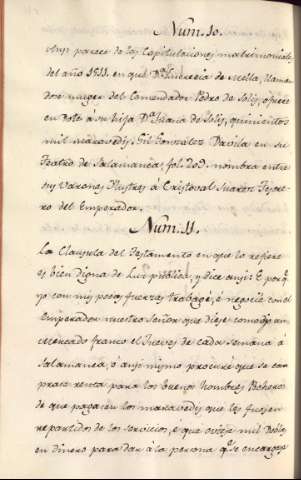 Num. 10.
parece de las Capitulaciones matrimoniales
del año 1511. en que Dª. Lucrecia de Mella, llaman
dose muger del Comendador Pedro de Solis, ofrece
en Dote á su hija Dª. Juana de Solis, quinientos
mil maravedis, Gil Gonzalez Davila en su
Teatro de Salamanca, fol. nombra entre
sus Varones Ilustres á Cristoval Suarez Tesore
ro del Emperador.
Num. 11.
La Clausula del Testamento en que lo refiere
es bien digna de Luz publica, y dice ansi: E porq.
yo con mis pocas fuerzas trabagé, é negocié con el
Emperador nuestro Señor que diese como dió un
mercado franco el Jueves de cada semana á
Salamanca, é ansi mismo procuré que se com
prase renta para los buenos hombres Pecheros
de que pagasen los maravedis que les fuesen
repartidos de los servicios, é que mil
en dinero para dar á la persona q. se encargase